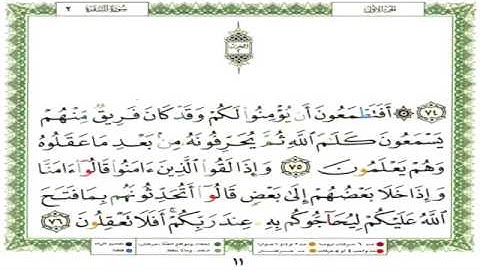 الجزء الأول
سورة البقرة ٢
الحزب ٢
٧٤ ۞ أَفَتَطْمَعُونَ أَن يُؤْمِنُوا۟ لَكُمْ وَقَدْ كَانَ فَرِيقٌ مِّنْهُمْ
يَسْمَعُونَ كَلَٰمَ ٱللَّهِ ثُمَّ يُحَرِّفُونَهُۥ مِنۢ بَعْدِ مَا عَقَلُوهُ
وَهُمْ يَعْلَمُونَ ٧٥ وَإِذَا لَقُوا۟ ٱلَّذِينَ ءَامَنُوا۟ قَالُوٓا۟ ءَامَنَّا
وَإِذَا خَلَا بَعْضُهُمْ إِلَىٰ بَعْضٍ قَالُوٓا۟ أَتُحَدِّثُونَهُم بِمَا فَتَحَ
ٱللَّهُ عَلَيْكُمْ لِيُحَآجُّوكُم بِهِۦ عِندَ رَبِّكُمْ ۚ أَفَلَا تَعْقِلُونَ ٧٦
١١